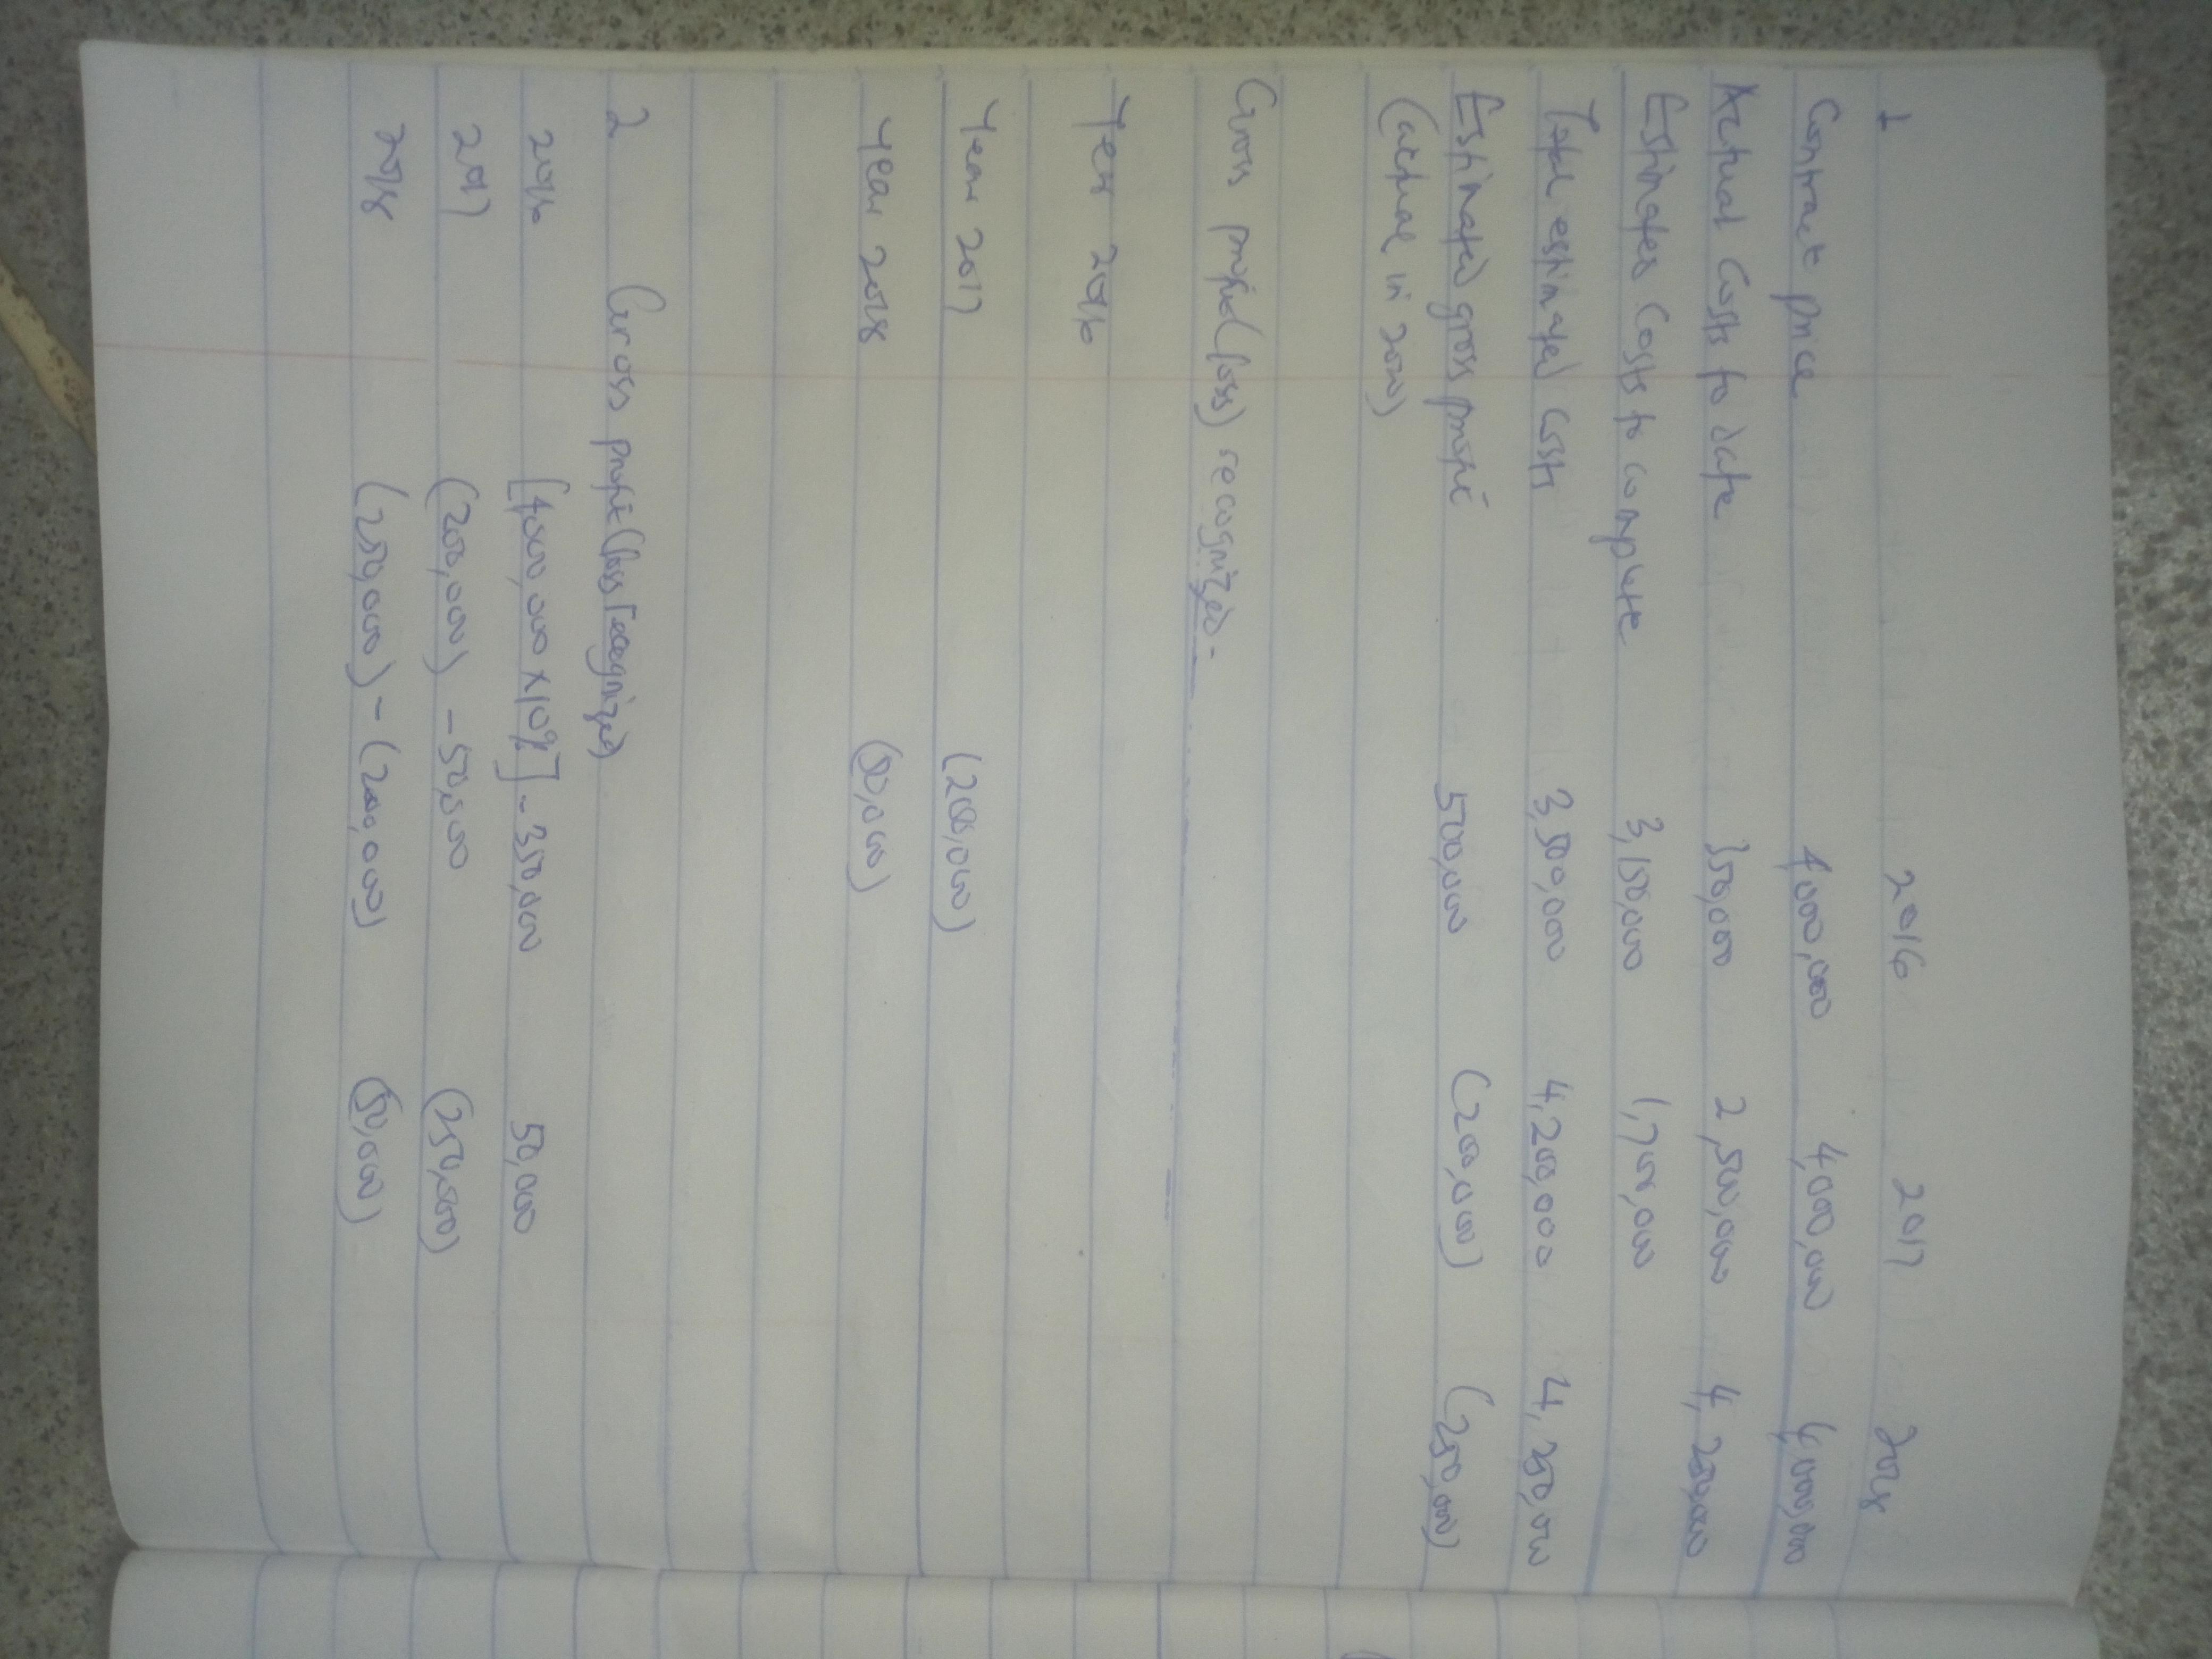 1 2016 2017 2018
Contract price 4,000,000 4,000,000 4,000,000
Actual Costs to date 350,000 2,500,000 4,250,000
Estimates Costs to complete 3,150,000 1,700,000
Total estimated Costs 3,500,000 4,200,000 4,250,000
Estimated gross profit 500,000 (200,000) (250,000)
(actual in
Gross profit (loss) recognized-
Year 2016
Year 2017 (200,000)
Year 2018 (50,000)
2 Gross profit (loss recognized)
2016 [4,000,000 x 10%] - 350,000 50,000
2017 (200,000) - 50,000 (250,000)
2018 (250,000) - (200,000) (50,000)